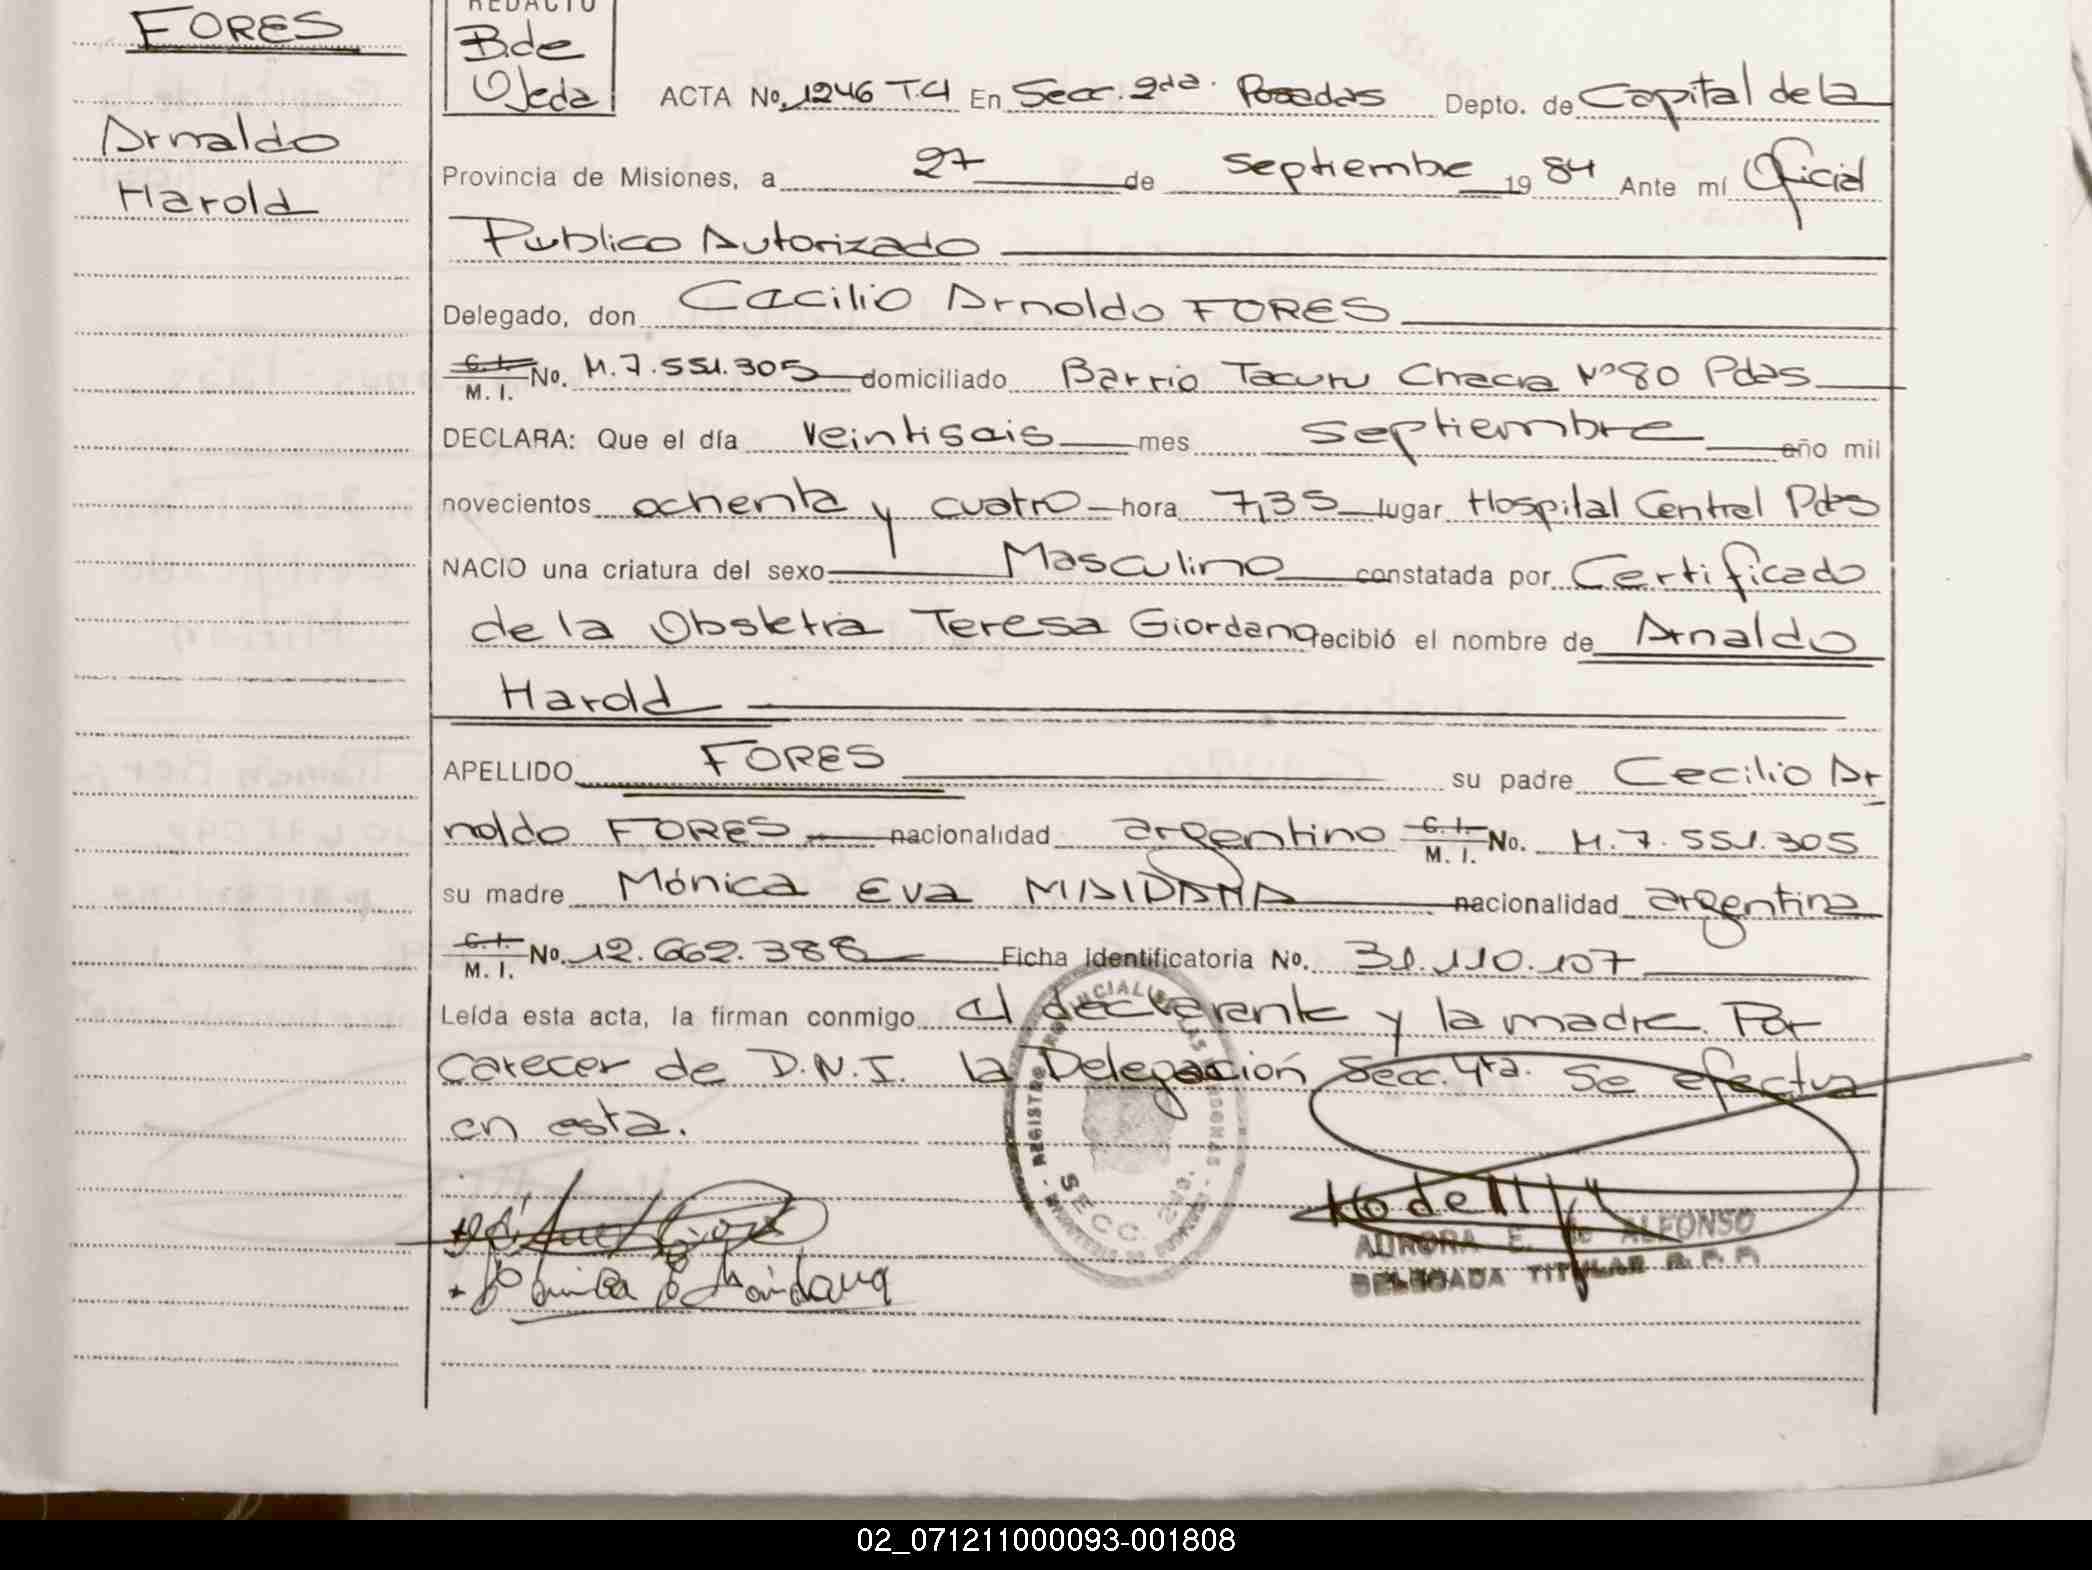 FORES
Arnaldo
Harold
REDACTO
B. de
Ojeda
ACTA No. 1246 T.4 En Secc. 2da. Posadas Depto. de Capital de la
Provincia de Misiones, a 27 de Septiembre 19 84 Ante mí Oficial
Publico Autorizado
Delegado, don Cecilio Arnoldo FORES
C. I. No. M.7.551.305 domiciliado Barrio Tacuru Chacra Nº 80 Pdas
M. I.
DECLARA: Que el día Veintiseis mes Septiembre año mil
novecientos ochenta y cuatro hora 7,35 lugar Hospital Central Pdas
NACIO una criatura del sexo Masculino constatada por Certificado
de la Obstetra Teresa Giordano recibió el nombre de Arnaldo
Harold
APELLIDO FORES su padre Cecilio Ar
noldo FORES nacionalidad argentino C. I. No. M.7.551.305
M. I.
su madre Mónica Eva MAIDANA nacionalidad argentina
C. I. No. 12.662.388 Ficha identificatoria No. 31.110.107
M. I.
Leída esta acta, la firman conmigo el declarante y la madre. Por
carecer de D.N.I. la Delegación Secc. 4ta. se efectua
en esta.
REGISTRO PROVINCIAL DE LAS PERSONAS
SECC. 2da.
AURORA E. de ALFONSO
DELEGADA TITULAR R.P.P.
02_071211000093-001808